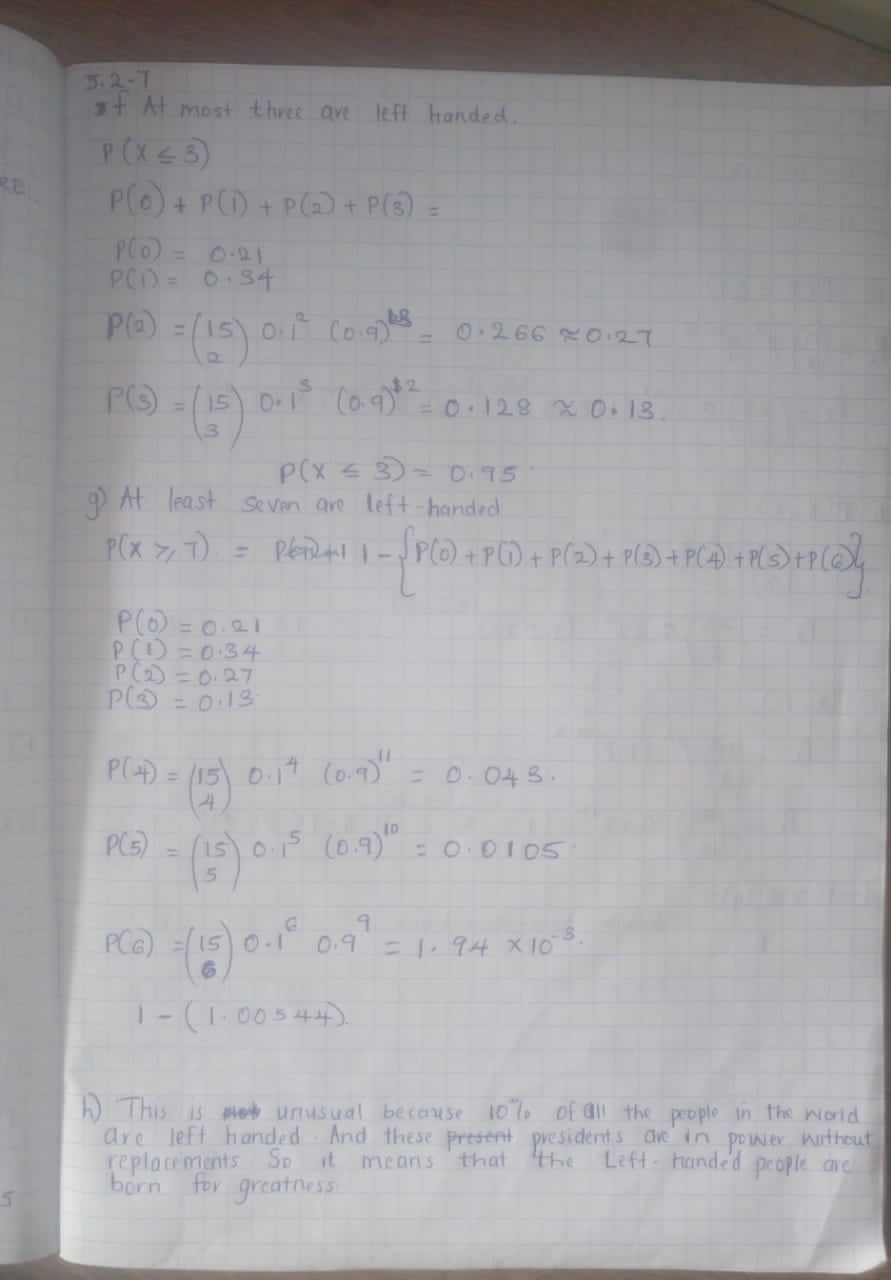 5.2-7
f At most three are left handed.
P(X ≤ 3)
P(0) + P(1) + P(2) + P(3) =
P(0) = 0.21
P(1) = 0.34
P(2) = (15 2) 0.1² (0.9)¹³ = 0.266 ≈ 0.27
P(3) = (15 3) 0.1³ (0.9)¹² = 0.128 ≈ 0.13.
P(X ≤ 3) = 0.95
g) At least seven are left-handed
P(X ≥ 7) = 1 - {P(0) + P(1) + P(2) + P(3) + P(4) + P(5) + P(6)}
P(0) = 0.21
P(1) = 0.34
P(2) = 0.27
P(3) = 0.13
P(4) = (15 4) 0.1⁴ (0.9)¹¹ = 0.043.
P(5) = (15 5) 0.1⁵ (0.9)¹⁰ = 0.0105
P(6) = (15 6) 0.1⁶ 0.9⁹ = 1.94 × 10⁻³.
1 - (1.00544).
h) This is unusual because 10% of all the people in the world
are left handed. And these present presidents are in power without
replacements So it means that the Left-handed people are
born for greatness
RE
5